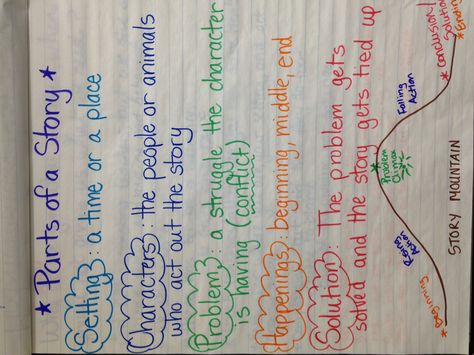 * Parts of a Story *
Setting: a time or a place
Characters: the people or animals
who act out the story
Problem: a struggle the character
is having (conflict)
Happenings: beginning, middle, end
Solution: The problem gets
solved and the story gets tied up
* Beginning
Rising
Action
* Problem
Climax
Falling
Action
* Conclusion/
Solution
* Ending
STORY MOUNTAIN